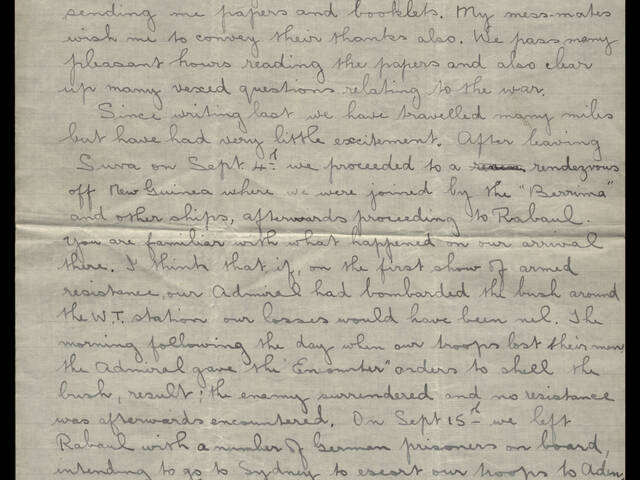 sending me papers and booklets. My mess-mates
wish me to convey their thanks also. We pass many
pleasant hours reading the papers and also clear
up many vexed questions relating to the war.
Since writing last we have travelled many miles
but have had very little excitement. After leaving
Suva on Sept 4th we proceeded to a rendezvous
off New Guinea where we were joined by the "Berrima"
and other ships, afterwards proceeding to Rabaul.
You are familiar with what happened on our arrival
there. I think that if, on the first show of armed
resistance, our Admiral had bombarded the bush around
the W.T. station our losses would have been nil. The
morning following the day when our troops lost their men
the Admiral gave the "Encounter" orders to shell the
bush, result: the enemy surrendered and no resistance
was afterwards encountered. On Sept 15th we left
Rabaul with a number of German prisoners on board,
intending to go to Sydney to escort our troops to Aden